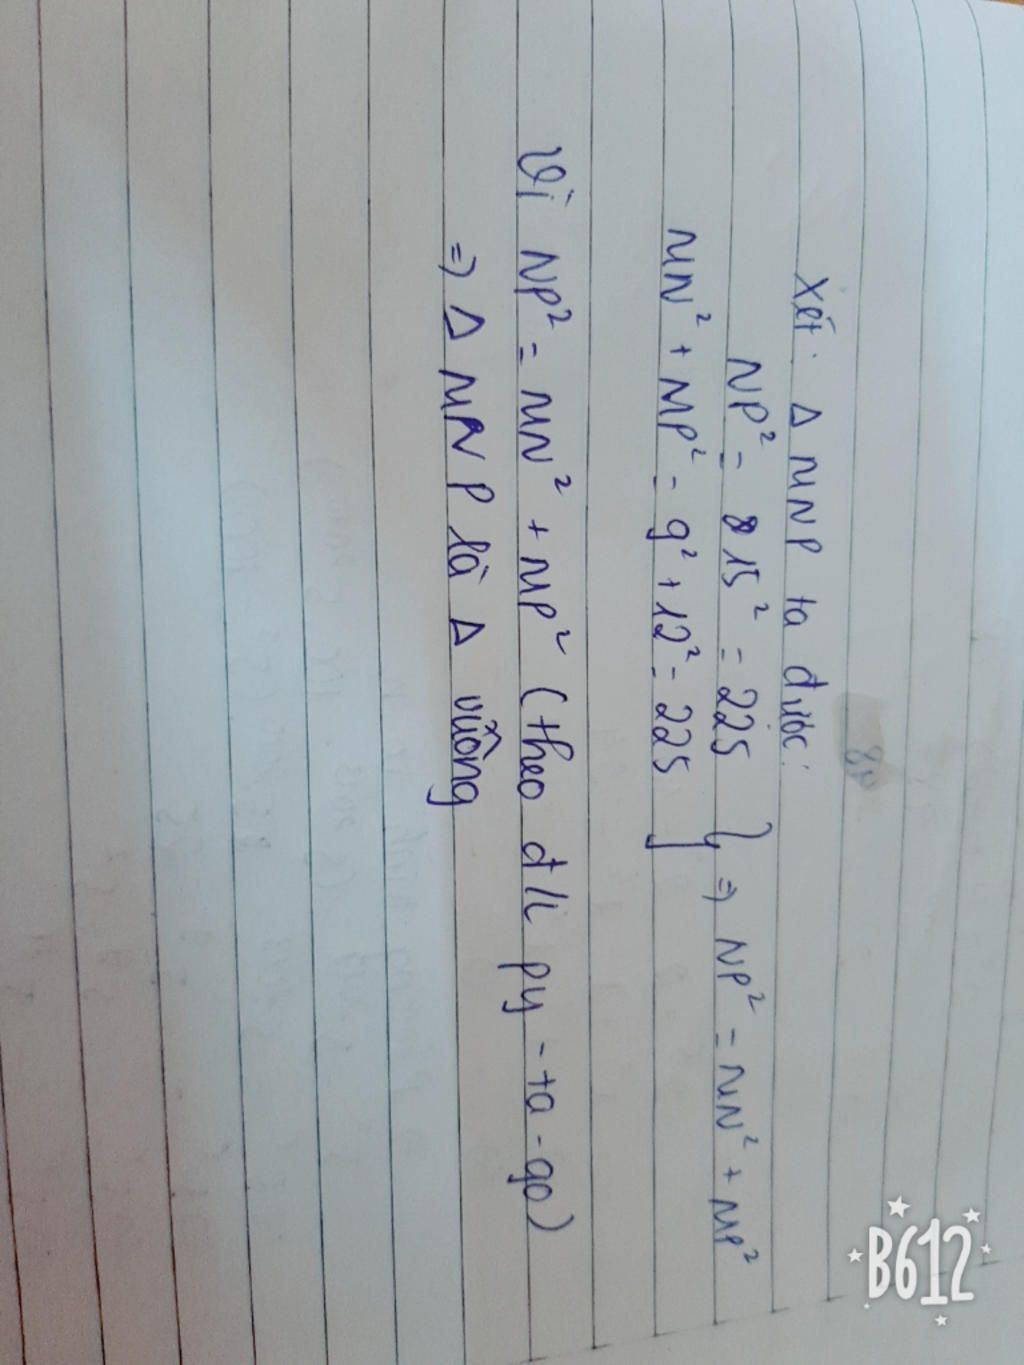 Xét Δ MNP ta được:
NP² = 15² = 225
MN² + MP² = 9² + 12² = 225 } => NP² = MN² + MP²
Vì NP² = MN² + MP² (theo đ/l py-ta-go)
=> Δ MNP là Δ vuông
B612